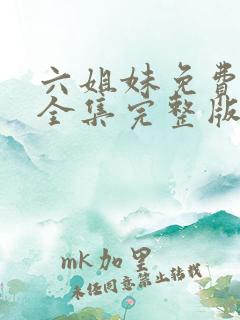 六姐妹免费
全集完整版
mk加里
未经同意禁止转载